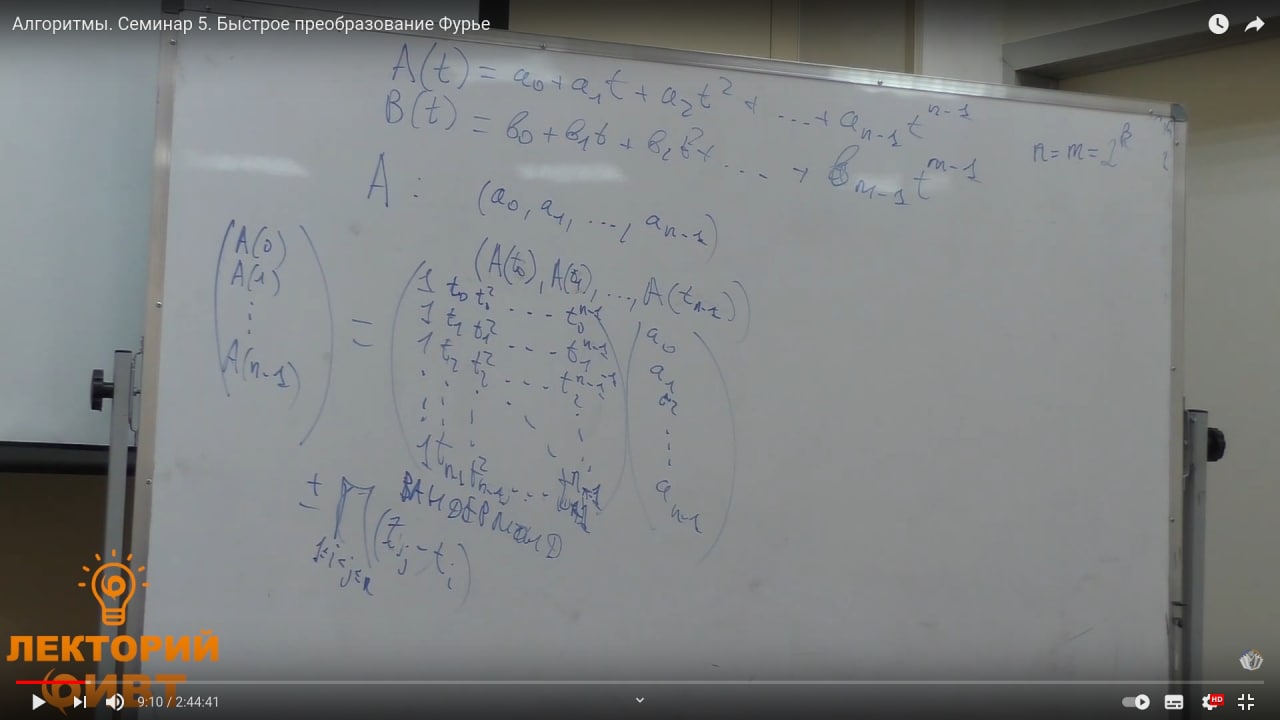 Алгоритмы. Семинар 5. Быстрое преобразование Фурье
A(t) = a₀ + a₁t + a₂t² + ... + aₙ₋₁tⁿ⁻¹
B(t) = b₀ + b₁t + b₂t² + ... + bₘ₋₁tᵐ⁻¹
n = m = 2ᵏ
A : (a₀, a₁, ..., aₙ₋₁)
(A(t₀), A(t₁), ..., A(tₙ₋₁))
A(0)
A(1)
⋮
A(n-1)
=
1 t₀ t₀² ... t₀ⁿ⁻¹
1 t₁ t₁² ... t₁ⁿ⁻¹
1 t₂ t₂² ... t₂ⁿ⁻¹
⋮ ⋮ ⋮ ⋱ ⋮
1 tₙ₋₁ tₙ₋₁² ... tₙ₋₁ⁿ⁻¹
a₀
a₁
a₂
⋮
aₙ₋₁
ВАНДЕРМОНД
± ∏ (tⱼ - tᵢ)
1≤i<j≤n
ЛЕКТОРИЙ
ФИВТ
9:10 / 2:44:41
HD